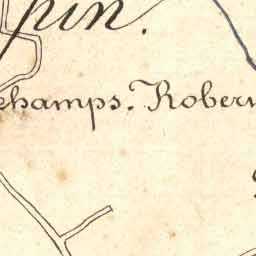 pin.
champs. Rober